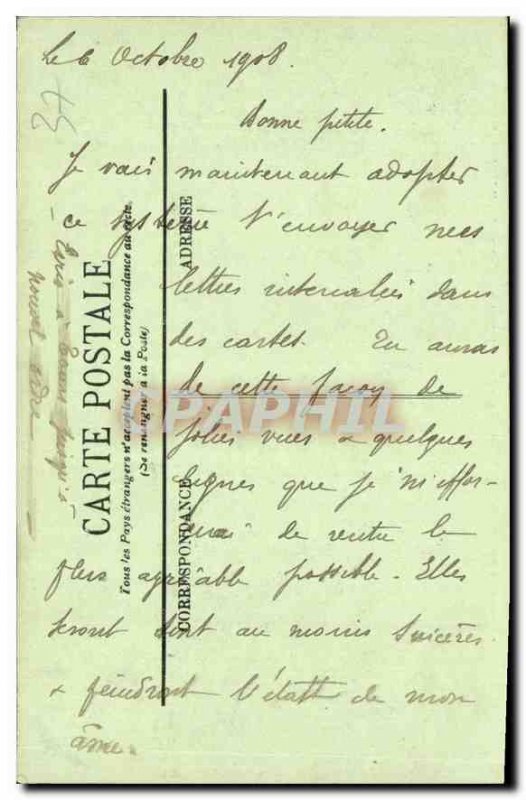 Le 6 Octobre 1908.
Bonne petite.
Je vais maintenant adopter
ce système t'envoyer mes
lettres intercalées dans
des cartes. Tu auras
de cette façon de
jolies vues & quelques
lignes que je m'effor-
cerai de rendre le
plus agréable possible. Elles
seront tout au moins sincères
& peindront l'état de mon
âme.
CARTE POSTALE
Tous les Pays étrangers n'acceptent pas la Correspondance au recto.
(Se renseigner à la Poste)
CORRESPONDANCE
ADRESSE
jusqu'à
nouvel ordre
CPAPHIL